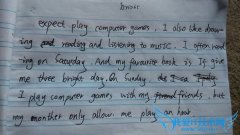 expect play computer games. I also like draw-
ing and reading and listening to music. I often read
ing on Saturday. And my favourite book is If give
me three bright day. On Sunday
I play computer games with my friends, but
my monther only allow me play an hour